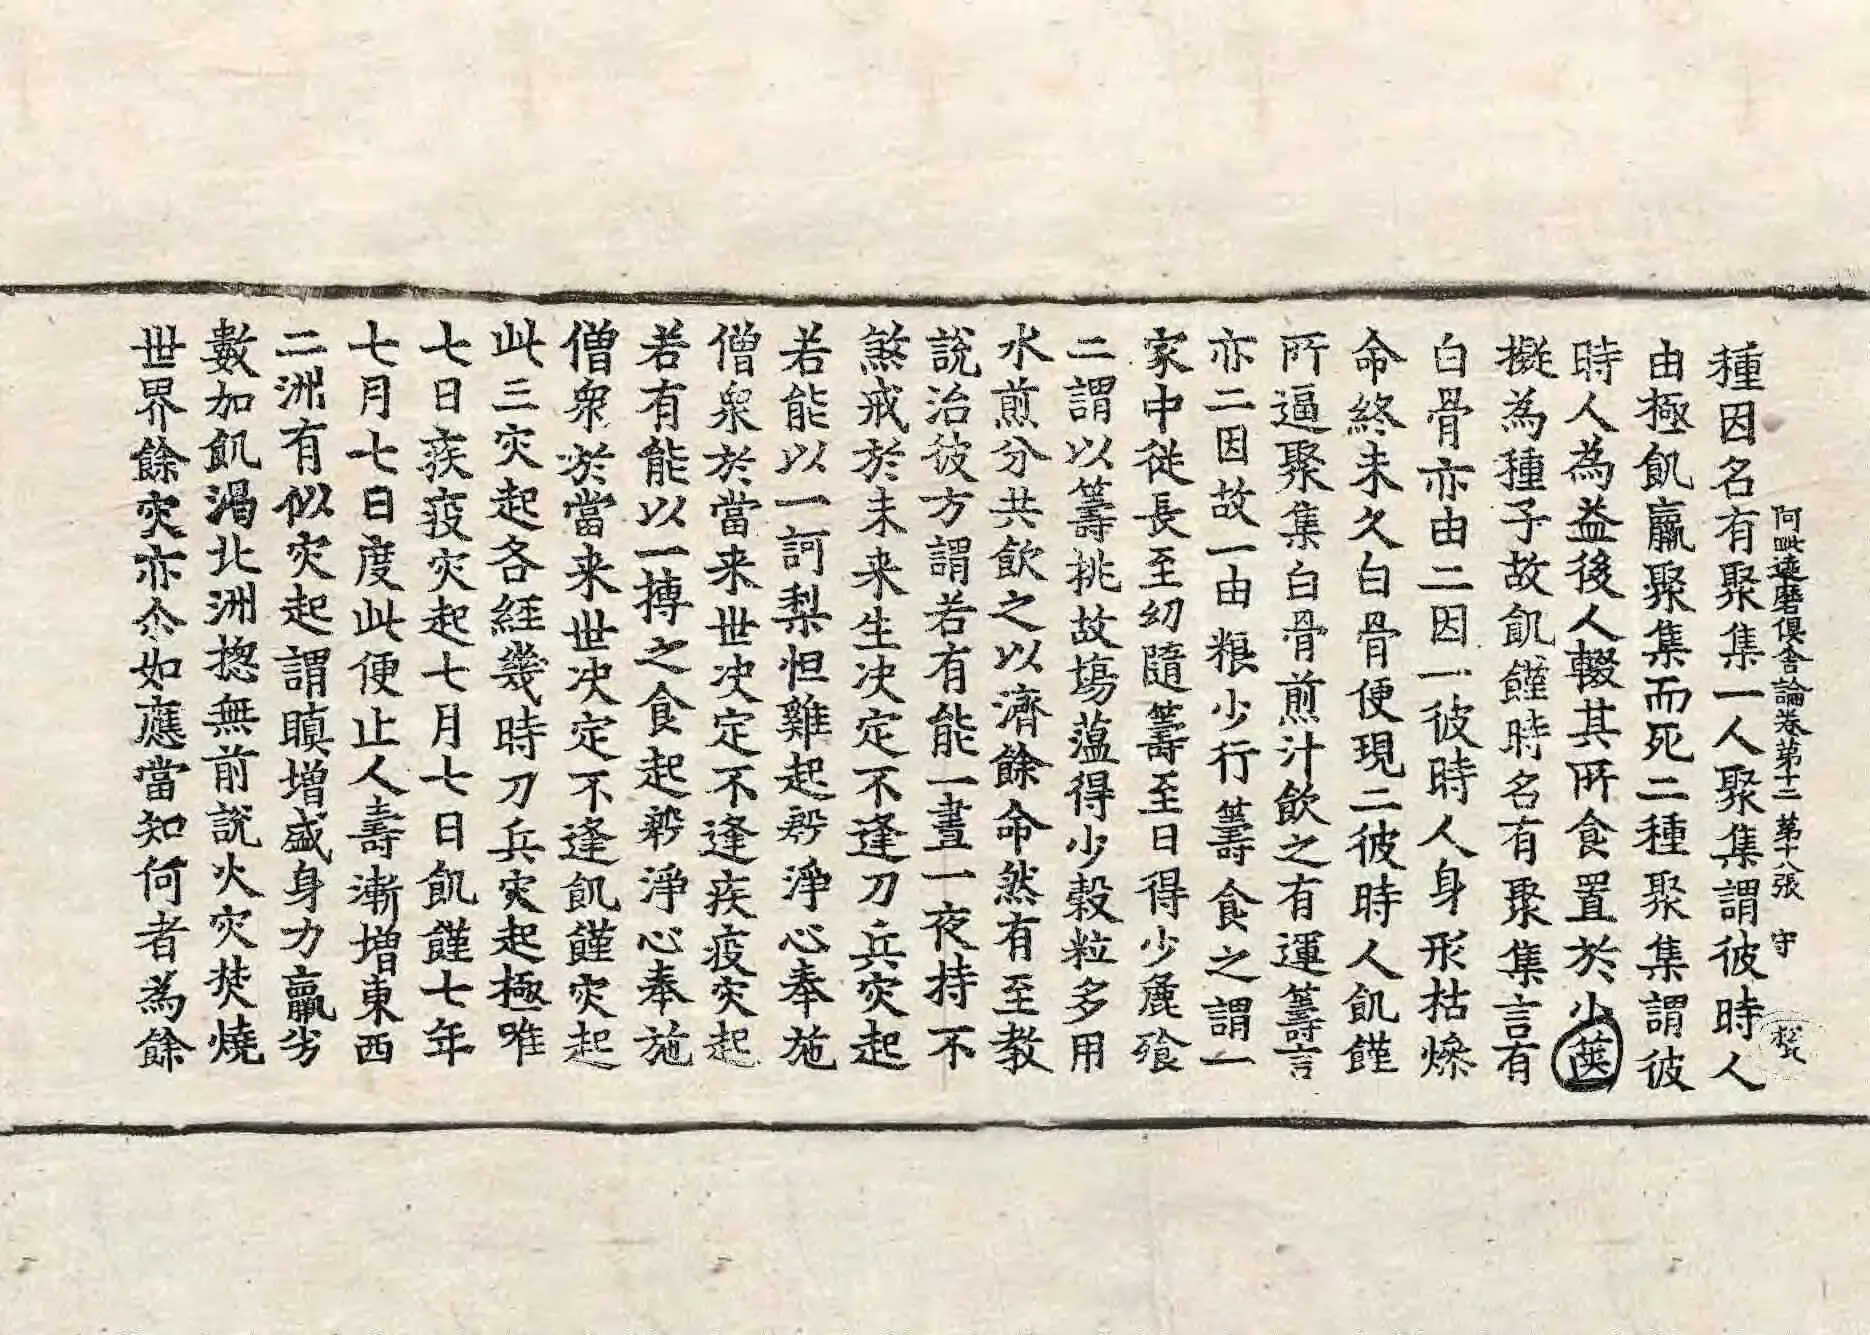 阿毗達磨俱舍論卷第十二 第十八張 守
種因名有聚集一人聚集謂彼時人
由極飢羸聚集而死二種聚集謂彼
時人為益後人輟其所食置於小篋
擬為種子故飢饉時名有聚集言有
白骨亦由二因一彼時人身形枯燥
命終未久白骨便現二彼時人飢饉
所逼聚集白骨煎汁飲之有運籌言
亦二因故一由粮少行籌食之謂一
家中從長至幼隨籌至日得少麁飡
二謂以籌挑故場蘊得少穀粒多用
水煎分共飲之以濟餘命然有至教
說治彼方謂若有能一晝一夜持不
煞戒於未來生决定不逢刀兵灾起
若能以一訶梨怛雞起殷淨心奉施
僧衆於當来世决定不逢疾疫灾起
若有能以一搏之食起殷淨心奉施
僧衆於當来世决定不逢飢饉灾起
此三灾起各經幾時刀兵灾起極唯
七日疾疫灾起七月七日飢饉七年
七月七日度此便止人壽漸增東西
二洲有似灾起謂瞋增盛身力羸劣
數加飢渴北洲揔無前說火灾焚燒
世界餘灾亦尒如應當知何者為餘